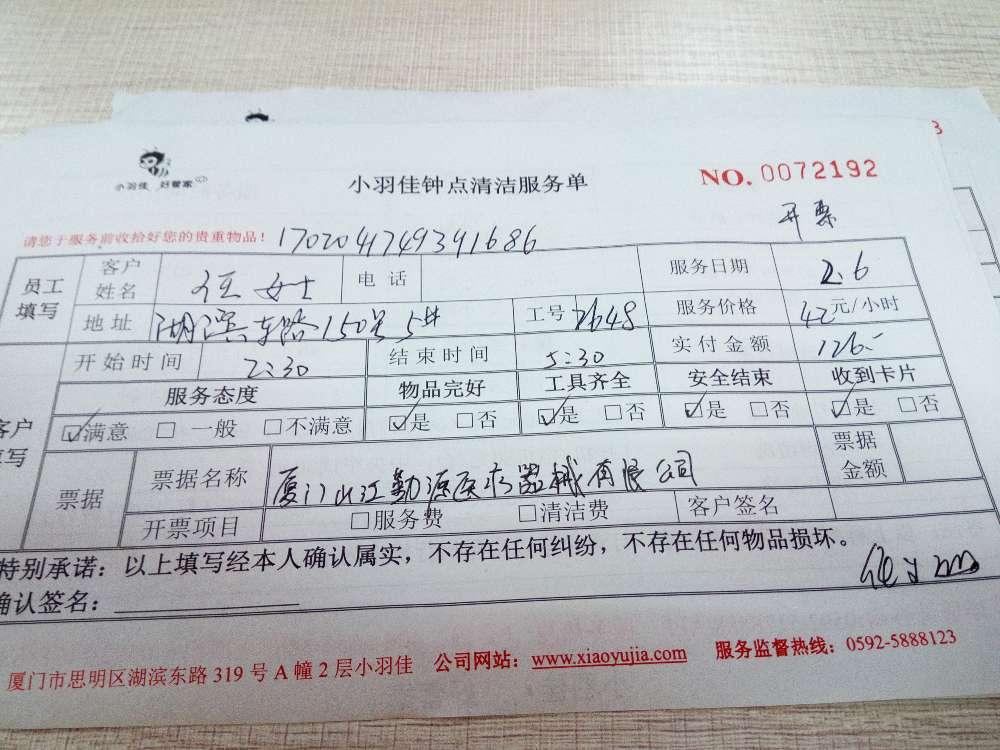 小羽佳 好管家
小羽佳钟点清洁服务单
NO. 0072192
开票
请您于服务前收拾好您的贵重物品！ 1702041749341686
员工填写 客户姓名 女士 电话 服务日期 2.6
地址 湖滨东路150号5# 工号 2648 服务价格 42元/小时
开始时间 2:30 结束时间 5:30 实付金额 126.-
服务态度 物品完好 工具齐全 安全结束 收到卡片
客户填写 ☑满意 □一般 □不满意 ☑是 □否 ☑是 □否 ☑是 □否 ☑是 □否
票据 票据名称 厦门山江勤源医疗器械有限公司 票据金额
开票项目 □服务费 □清洁费 客户签名
特别承诺：以上填写经本人确认属实，不存在任何纠纷，不存在任何物品损坏。
确认签名：
厦门市思明区湖滨东路 319 号 A 幢 2 层小羽佳 公司网站：www.xiaoyujia.com 服务监督热线：0592-5888123